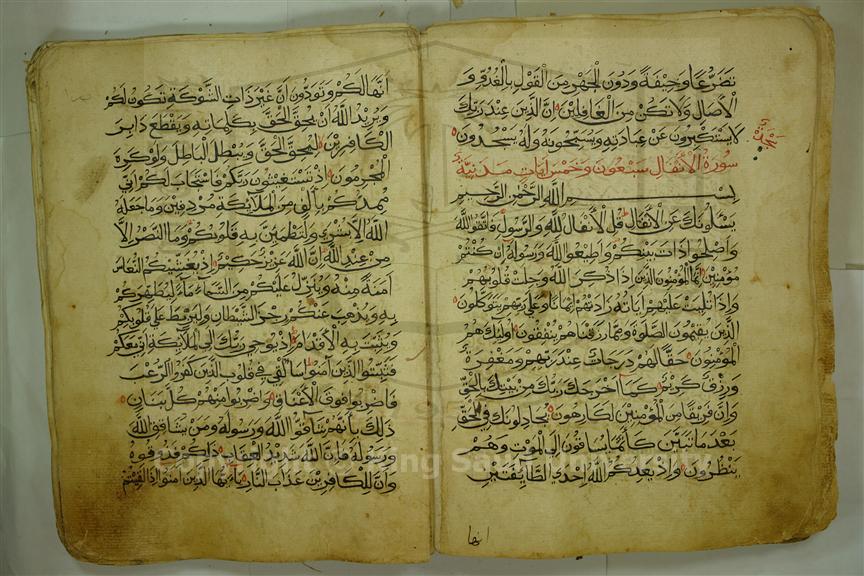 تضرعا وخيفة ودون الجهر من القول بالغدو و
الآصال ولا تكن من الغافلين ان الذين عند ربك
لا يستكبرون عن عبادته ويسبحونه وله يسجدون
سورة الأنفال سبعون وخمس آيات مدنية
بسم الله الرحمن الرحيم
يسئلونك عن الأنفال قل الأنفال لله والرسول فاتقوا الله
واصلحوا ذات بينكم واطيعوا الله ورسوله ان كنتم
مؤمنين انما المؤمنون الذين اذا ذكر الله وجلت قلوبهم
واذا تليت عليهم آياته زادتهم ايمانا وعلى ربهم يتوكلون
الذين يقيمون الصلوة ومما رزقناهم ينفقون اولئك هم
المؤمنون حقا لهم درجات عند ربهم ومغفرة
ورزق كريم كما اخرجك ربك من بيتك بالحق
وان فريقا من المؤمنين لكارهون يجادلونك في الحق
بعد ما تبين كانما يساقون الى الموت وهم
ينظرون واذ يعدكم الله احدى الطائفتين
انها
انها لكم وتودون ان غير ذات الشوكة تكون لكم
ويريد الله ان يحق الحق بكلماته ويقطع دابر
الكافرين ليحق الحق ويبطل الباطل ولو كره
المجرمون اذ تستغيثون ربكم فاستجاب لكم اني
ممدكم بالف من الملائكة مردفين وما جعله
الله الا بشرى ولتطمئن به قلوبكم وما النصر الا
من عند الله ان الله عزيز حكيم اذ يغشيكم النعاس
امنة منه وينزل عليكم من السماء ماء ليطهركم
به ويذهب عنكم رجز الشيطان وليربط على قلوبكم
ويثبت به الاقدام اذ يوحي ربك الى الملائكة اني معكم
فثبتوا الذين آمنوا سالقي في قلوب الذين كفروا الرعب
فاضربوا فوق الاعناق واضربوا منهم كل بنان
ذلك بانهم شاقوا الله ورسوله ومن يشاقق الله
ورسوله فان الله شديد العقاب ذلكم فذوقوه
وان للكافرين عذاب النار يا ايها الذين آمنوا اذا لقيتم
Copyright © King Saud University